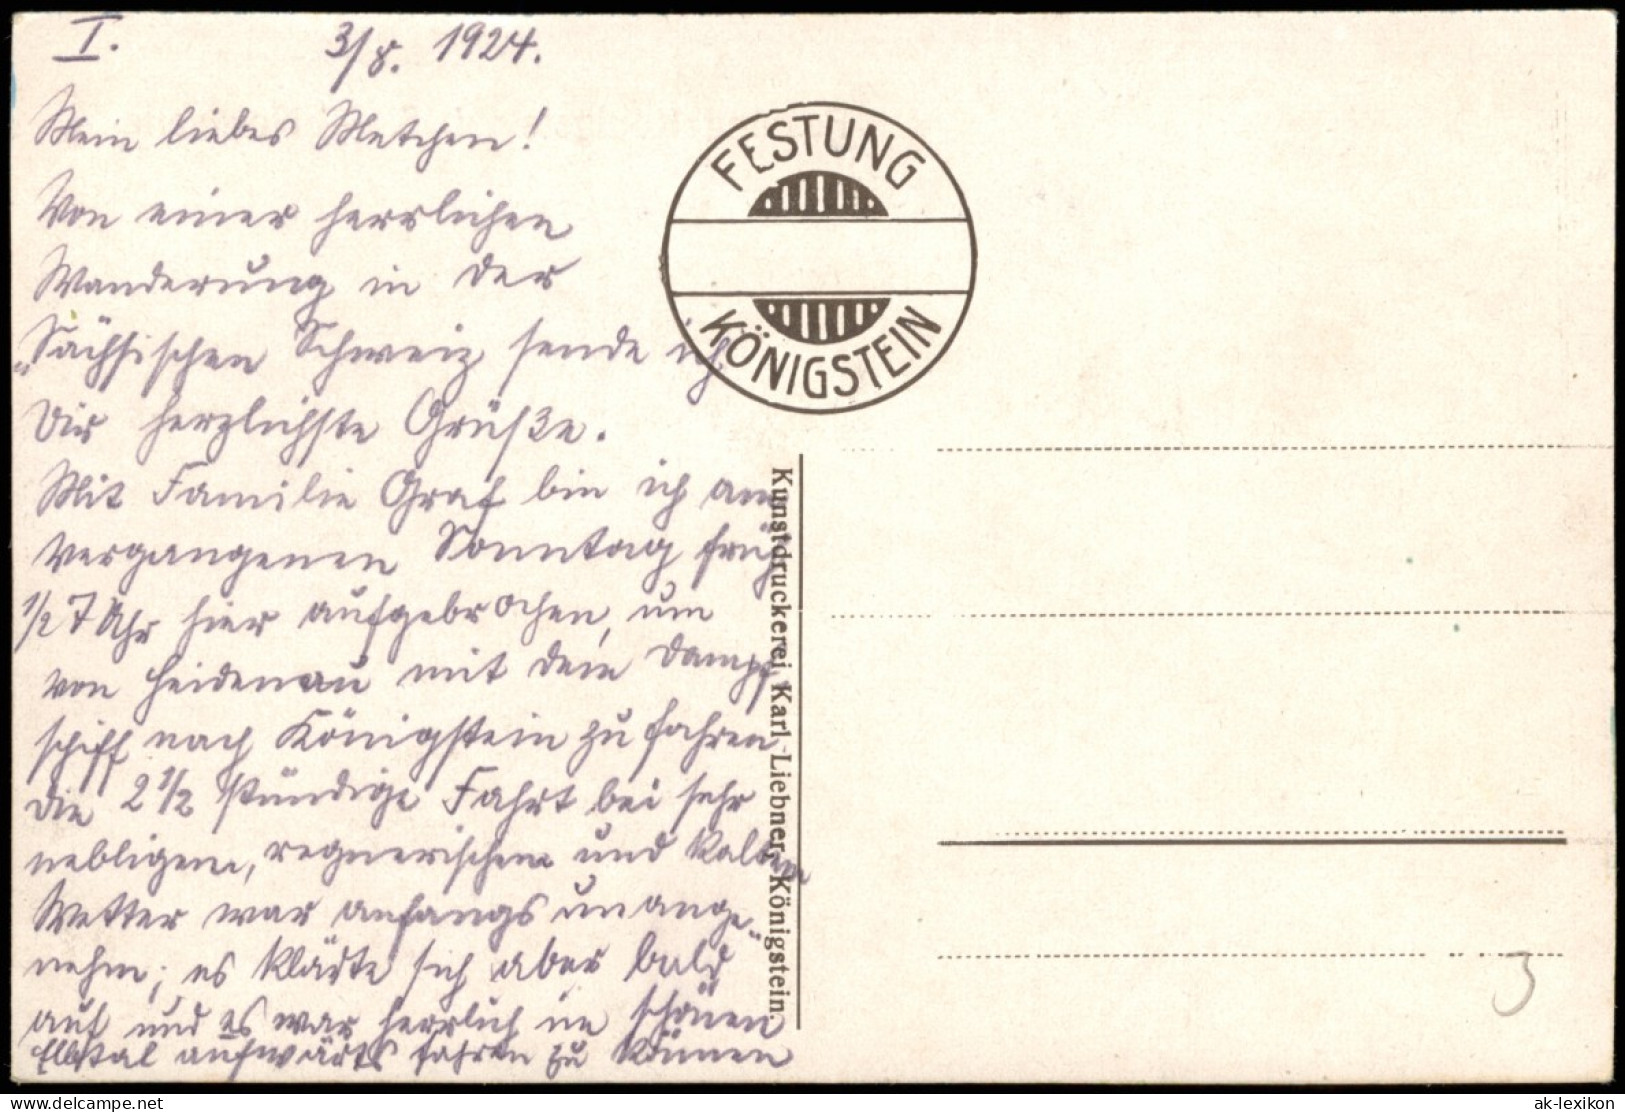 I. 3/8. 1924.
Mein liebes Metchen!
Von einer herrlichen
Wanderung in der
"Sächsischen Schweiz sende ich
Dir herzlichste Grüße.
Mit Familie Graf bin ich am
vergangenen Sonntag früh
1/2 7 Uhr hier aufgebrochen, um
von Heidenau mit dem Dampf
schiff nach Königstein zu fahren
Die 2 1/2 stündige Fahrt bei sehr
nebligem, regnerischem und kaltem
Wetter war anfangs unange-
nehm; es klärte sich aber bald
auf und es war herrlich im schönen
Elbtal aufwärts fahren zu können
FESTUNG
KÖNIGSTEIN
Kunstdruckerei Karl Liebner, Königstein.
3
www.delcampe.net
ak-lexikon